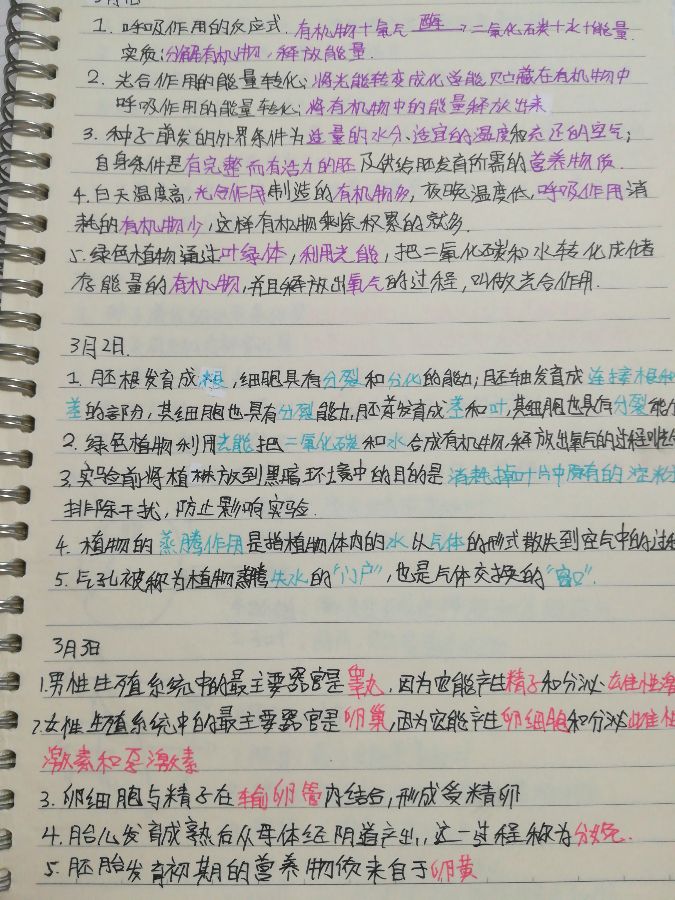 1. 呼吸作用的反应式. 有机物+氧气 酶→ 二氧化碳+水+能量.
实质:分解有机物,释放能量.
2. 光合作用的能量转化:将光能转变成化学能贮藏在有机物中
呼吸作用的能量转化:将有机物中的能量释放出来
3. 种子萌发的外界条件为适量的水分.适宜的温度和充足的空气;
自身条件是有完整而有活力的胚及供给胚发育所需的营养物质.
4. 白天温度高,光合作用制造的有机物多,夜晚温度低,呼吸作用消
耗的有机物少,这样有机物剩余积累的就多.
5. 绿色植物通过叶绿体,利用光能,把二氧化碳和水转化成储
存能量的有机物,并且释放出氧气的过程,叫做光合作用.
3月2日.
1. 胚根发育成根,细胞具有分裂和分化的能力;胚轴发育成连接根和
茎的部分,其细胞也具有分裂能力,胚芽发育成茎和叶,其细胞也具有分裂能
2. 绿色植物利用光能把二氧化碳和水合成有机物,释放出氧气的过程
3. 实验前将植株放到黑暗环境中的目的是消耗掉叶片中原有的淀粉
排除干扰,防止影响实验.
4. 植物的蒸腾作用是指植物体内的水以气体的形式散失到空气中的过程
5. 气孔被称为植物蒸腾失水的"门户",也是气体交换的"窗口".
3月3日
1.男性生殖系统中的最主要器官是睾丸,因为它能产生精子和分泌雄性激
2.女性生殖系统中的最主要器官是卵巢,因为它能产生卵细胞和分泌雌性
激素和孕激素
3. 卵细胞与精子在输卵管内结合,形成受精卵
4. 胎儿发育成熟后从母体经阴道产出,这一过程称为分娩.
5. 胚胎发育初期的营养物质来自于卵黄